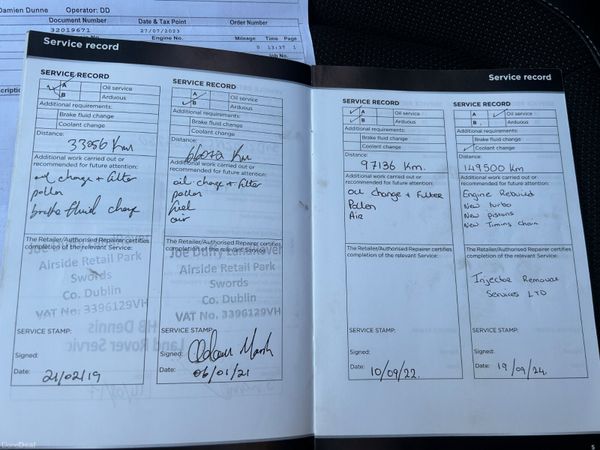 Damien Dunne Operator: DD
Document Number Date & Tax Point Order Number
32019671 27/07/2023
Engine No. Mileage Time Page
0 13:37 1
Service record
SERVICE RECORD
A Oil service
B Arduous
Additional requirements:
Brake fluid change
Coolant change
Distance:
33056 Km
Additional work carried out or
recommended for future attention:
oil change + filter
pollen
brake fluid change
The Retailer/Authorised Repairer certifies
completion of the relevant Service:
Airside Retail Park
Swords
Co. Dublin
VAT No: 3396129VH
SERVICE STAMP:
Signed:
Date: 21/02/19
SERVICE RECORD
A Oil service
B Arduous
Additional requirements:
Brake fluid change
Coolant change
Distance:
Additional work carried out or
recommended for future attention:
oil change + filter
pollen
fuel
air
The Retailer/Authorised Repairer certifies
completion of the relevant Service:
Joe Duffy Land Rover
Airside Retail Park
Swords
Co. Dublin
VAT No. 3396129VH
SERVICE STAMP:
Signed:
Date: 06/01/21
Service record
SERVICE RECORD
A Oil service
B Arduous
Additional requirements:
Brake fluid change
Coolant change
Distance:
97136 Km.
Additional work carried out or
recommended for future attention:
Oil change & Filter
Pollen
Air
The Retailer/Authorised Repairer certifies
completion of the relevant Service:
SERVICE STAMP:
Signed:
Date: 10/09/22.
SERVICE RECORD
A Oil service
B Arduous
Additional requirements:
Brake fluid change
Coolant change
Distance:
149500 Km
Additional work carried out or
recommended for future attention:
Engine Rebuild
New turbo
New pistons
New Timing chain
The Retailer/Authorised Repairer certifies
completion of the relevant Service:
Injector Removal
Services LTD
SERVICE STAMP:
Signed:
Date: 19/09/24.
5
DoneDeal